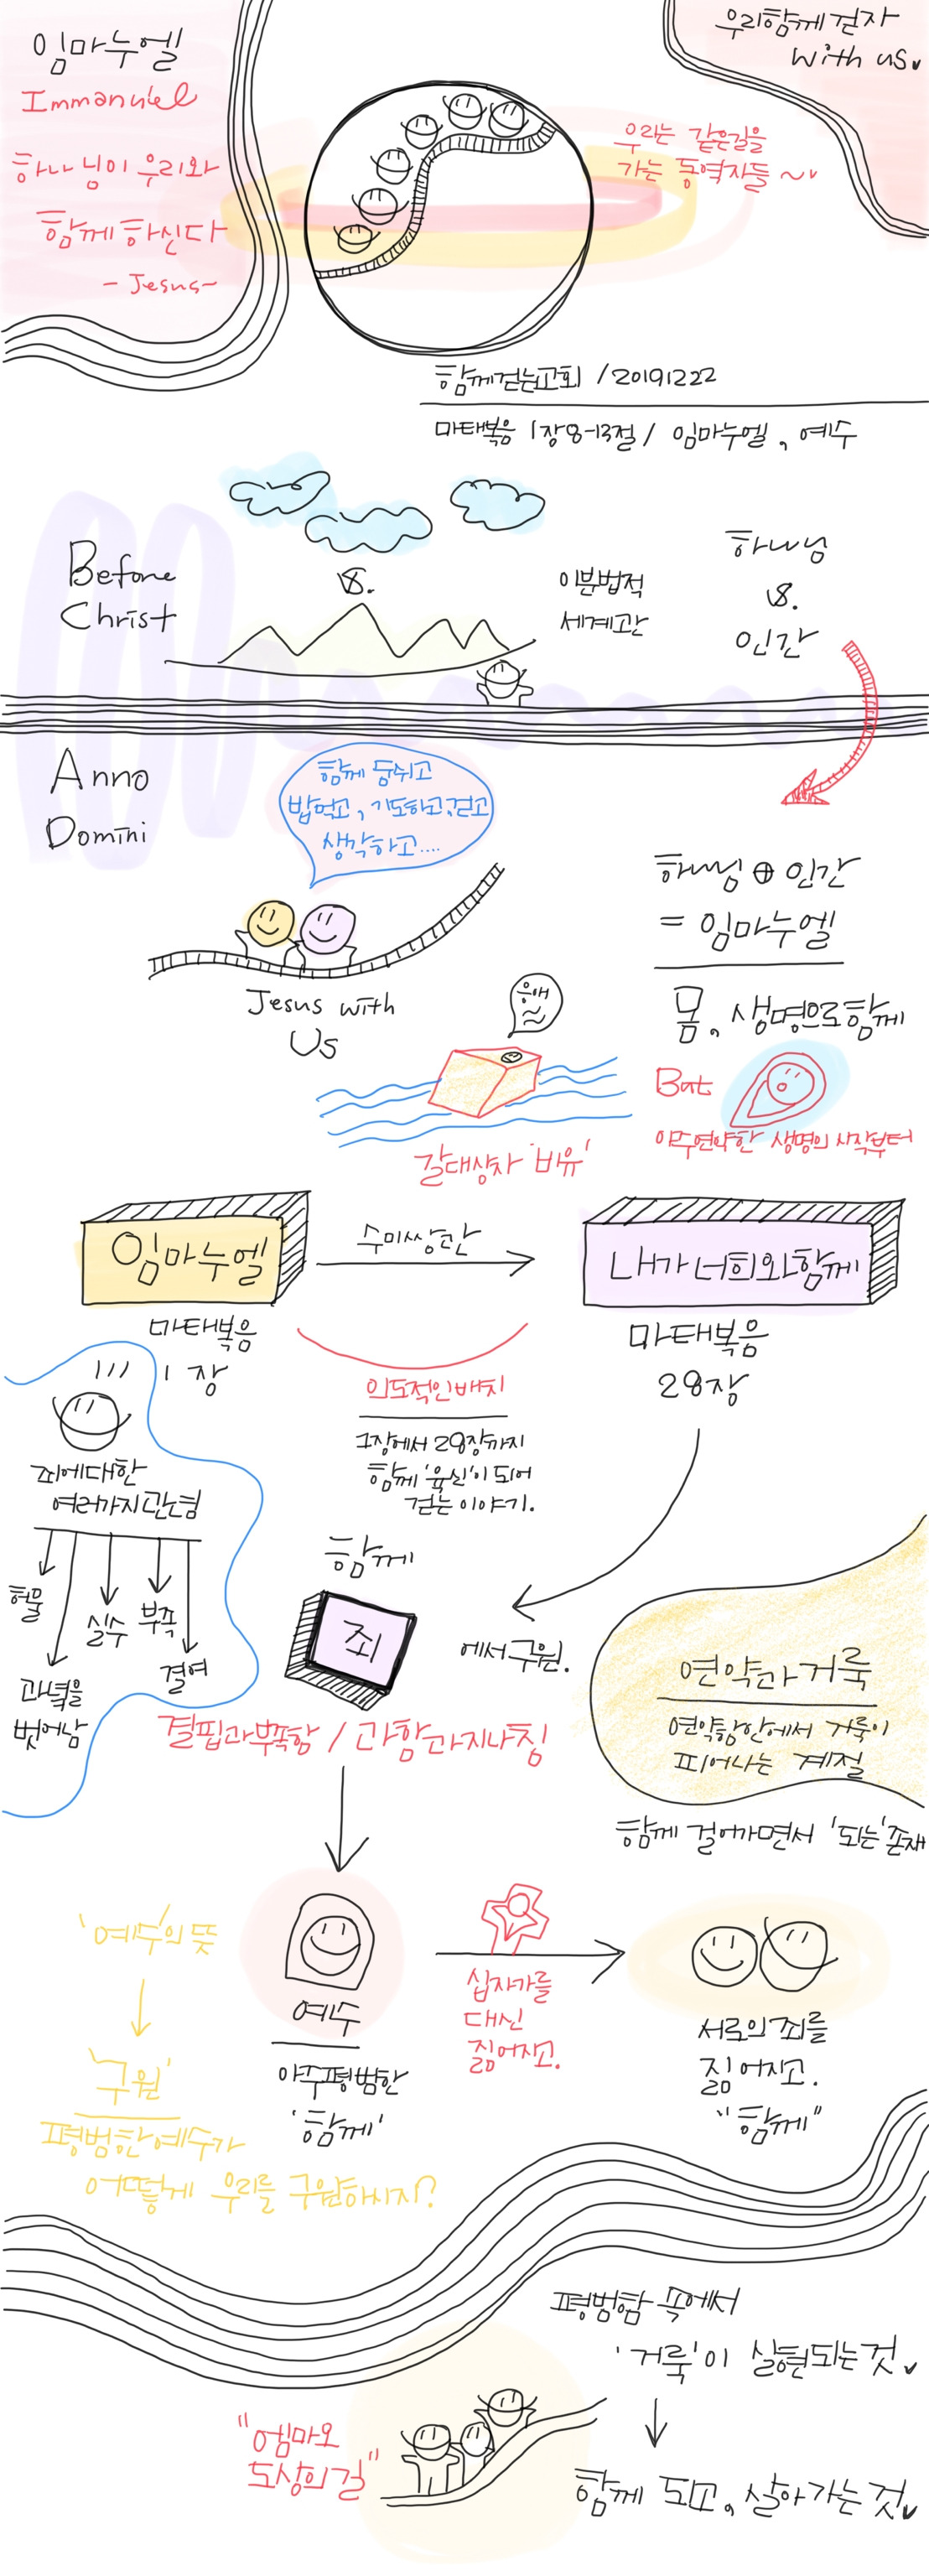 임마누엘
Immanuel
하나님이 우리와
함께하신다
- Jesus ~
우리함께 걷자
With us
우리는 같은길을
가는 동역자들 ~
함께걷는교회 / 20191222
마태복음 1장 8-13절 / 임마누엘, 예수
Before
Christ
vs.
이분법적
세계관
하나님
vs.
인간
Anno
Domini
함께 숨쉬고
밥먹고, 기도하고, 걷고
생각하고....
Jesus with
Us
하나님 ⊕ 인간
= 임마누엘
몸, 생명으로함께
응애
~
But
아주연약한 생명의 시작부터
갈대상자 '비유'
임마누엘
마태복음
1장
수미쌍관
내가 너희와함께
마태복음
28장
의도적인배치
1장에서 28장까지
함께 '육신'이 되어
걷는 이야기.
죄에대한
여러가지관념
허물
과녁을
벗어남
실수
부족
결여
함께
죄
에서 구원.
결핍과부족함 / 과함과지나침
연약과 거룩
연약함안에서 거룩이
피어나는 계절
함께 걸어가면서 '되는' 존재
'예수'의 뜻
'구원'
평범한예수가
어떻게 우리를 구원하시지?
예수
아주평범한
'함께'
십자가를
대신
짊어지고.
서로의 죄를
짊어지고.
"함께"
평범함 속에서
'거룩'이 실현되는것
함께 되고, 살아가는것
"엠마오
도상의길"